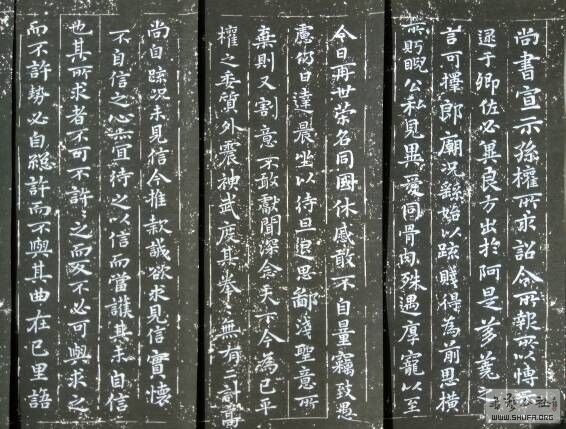 尚書宣示孫權所求詔令所報所以博示
逮于卿佐必異良方出於阿是芻蕘之
言可擇郎廟況繇始以疏賤得為前思橫
所眄睨公私見異愛同骨肉殊遇厚寵以至
今日再世榮名同國休慼敢不自量竊致愚
慮仍日達晨坐以待旦退思鄙淺聖意所
棄則又割意不敢獻聞深念天下今為已平
權之委質外震神武度其拳〻無有二計高
尚自疏況未見信今推款誠欲求見信實懷
不自信之心亦宜待之以信而當護其未自信
也其所求者不可不許〻之而反不必可與求之
而不許勢必自絕許而不與其曲在己里語
書法公社
WWW.SHUFA.ORG